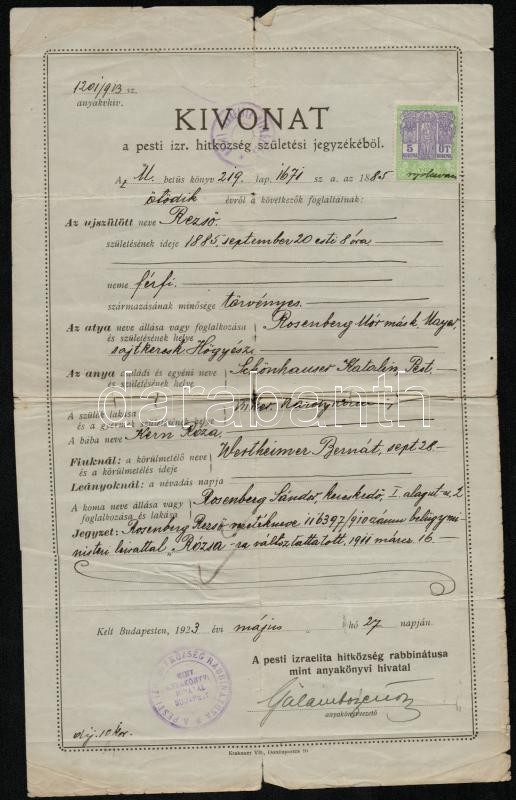 1201/913 sz.
anyakvhiv.
KIVONAT
a pesti izr. hitközség születési jegyzékéből.
5 ÖT
KORONA KORONA
Az M. betüs könyv 219. lap. 1671 sz a. az 1885
ötödik évről a következők foglaltatnak:
Az ujszülött neve Rezső.
születésének ideje 1885. september 20 esti 8 óra
neme férfi.
származásának minősége törvényes.
Az atya neve állása vagy foglalkozása és születésének helye Rosenberg Mór másk. Mayer,
sajtkeresk. Hőgyész
Az anya családi és egyéni neve és születésének helye Schönhauser Katalin, Pest.
A szülők lakása és a gyermek születésének helye
A bába neve Kern Róza.
Fiuknál: a körülmetélő neve és a körülmetélés ideje Wertheimer Bernát, sept 28.
Leányoknál: a névadás napja
A koma neve állása vagy foglalkozása és lakása Rosenberg Sándor, kereskedő, I. alagut u. 2
Jegyzet: Rosenberg Rezső vezetékneve 116397/910 számu belügymi-
nisteri leirattal „Rózsa"-ra változtattatott, 1911 márcz. 16.
Kelt Budapesten, 1923 évi május hó 27 napján.
A pesti izraelita hitközség rabbinátusa
mint anyakönyvi hivatal
anyakönyvvezető
A PESTI IZR. HITKÖZSÉG RABBINÁTUSA
MINT
ANYAKÖNYVI
HIVATAL
BUDAPEST
díj. 10 kor.
Krakauer Vilr, Dorottyautca 10
darabanth